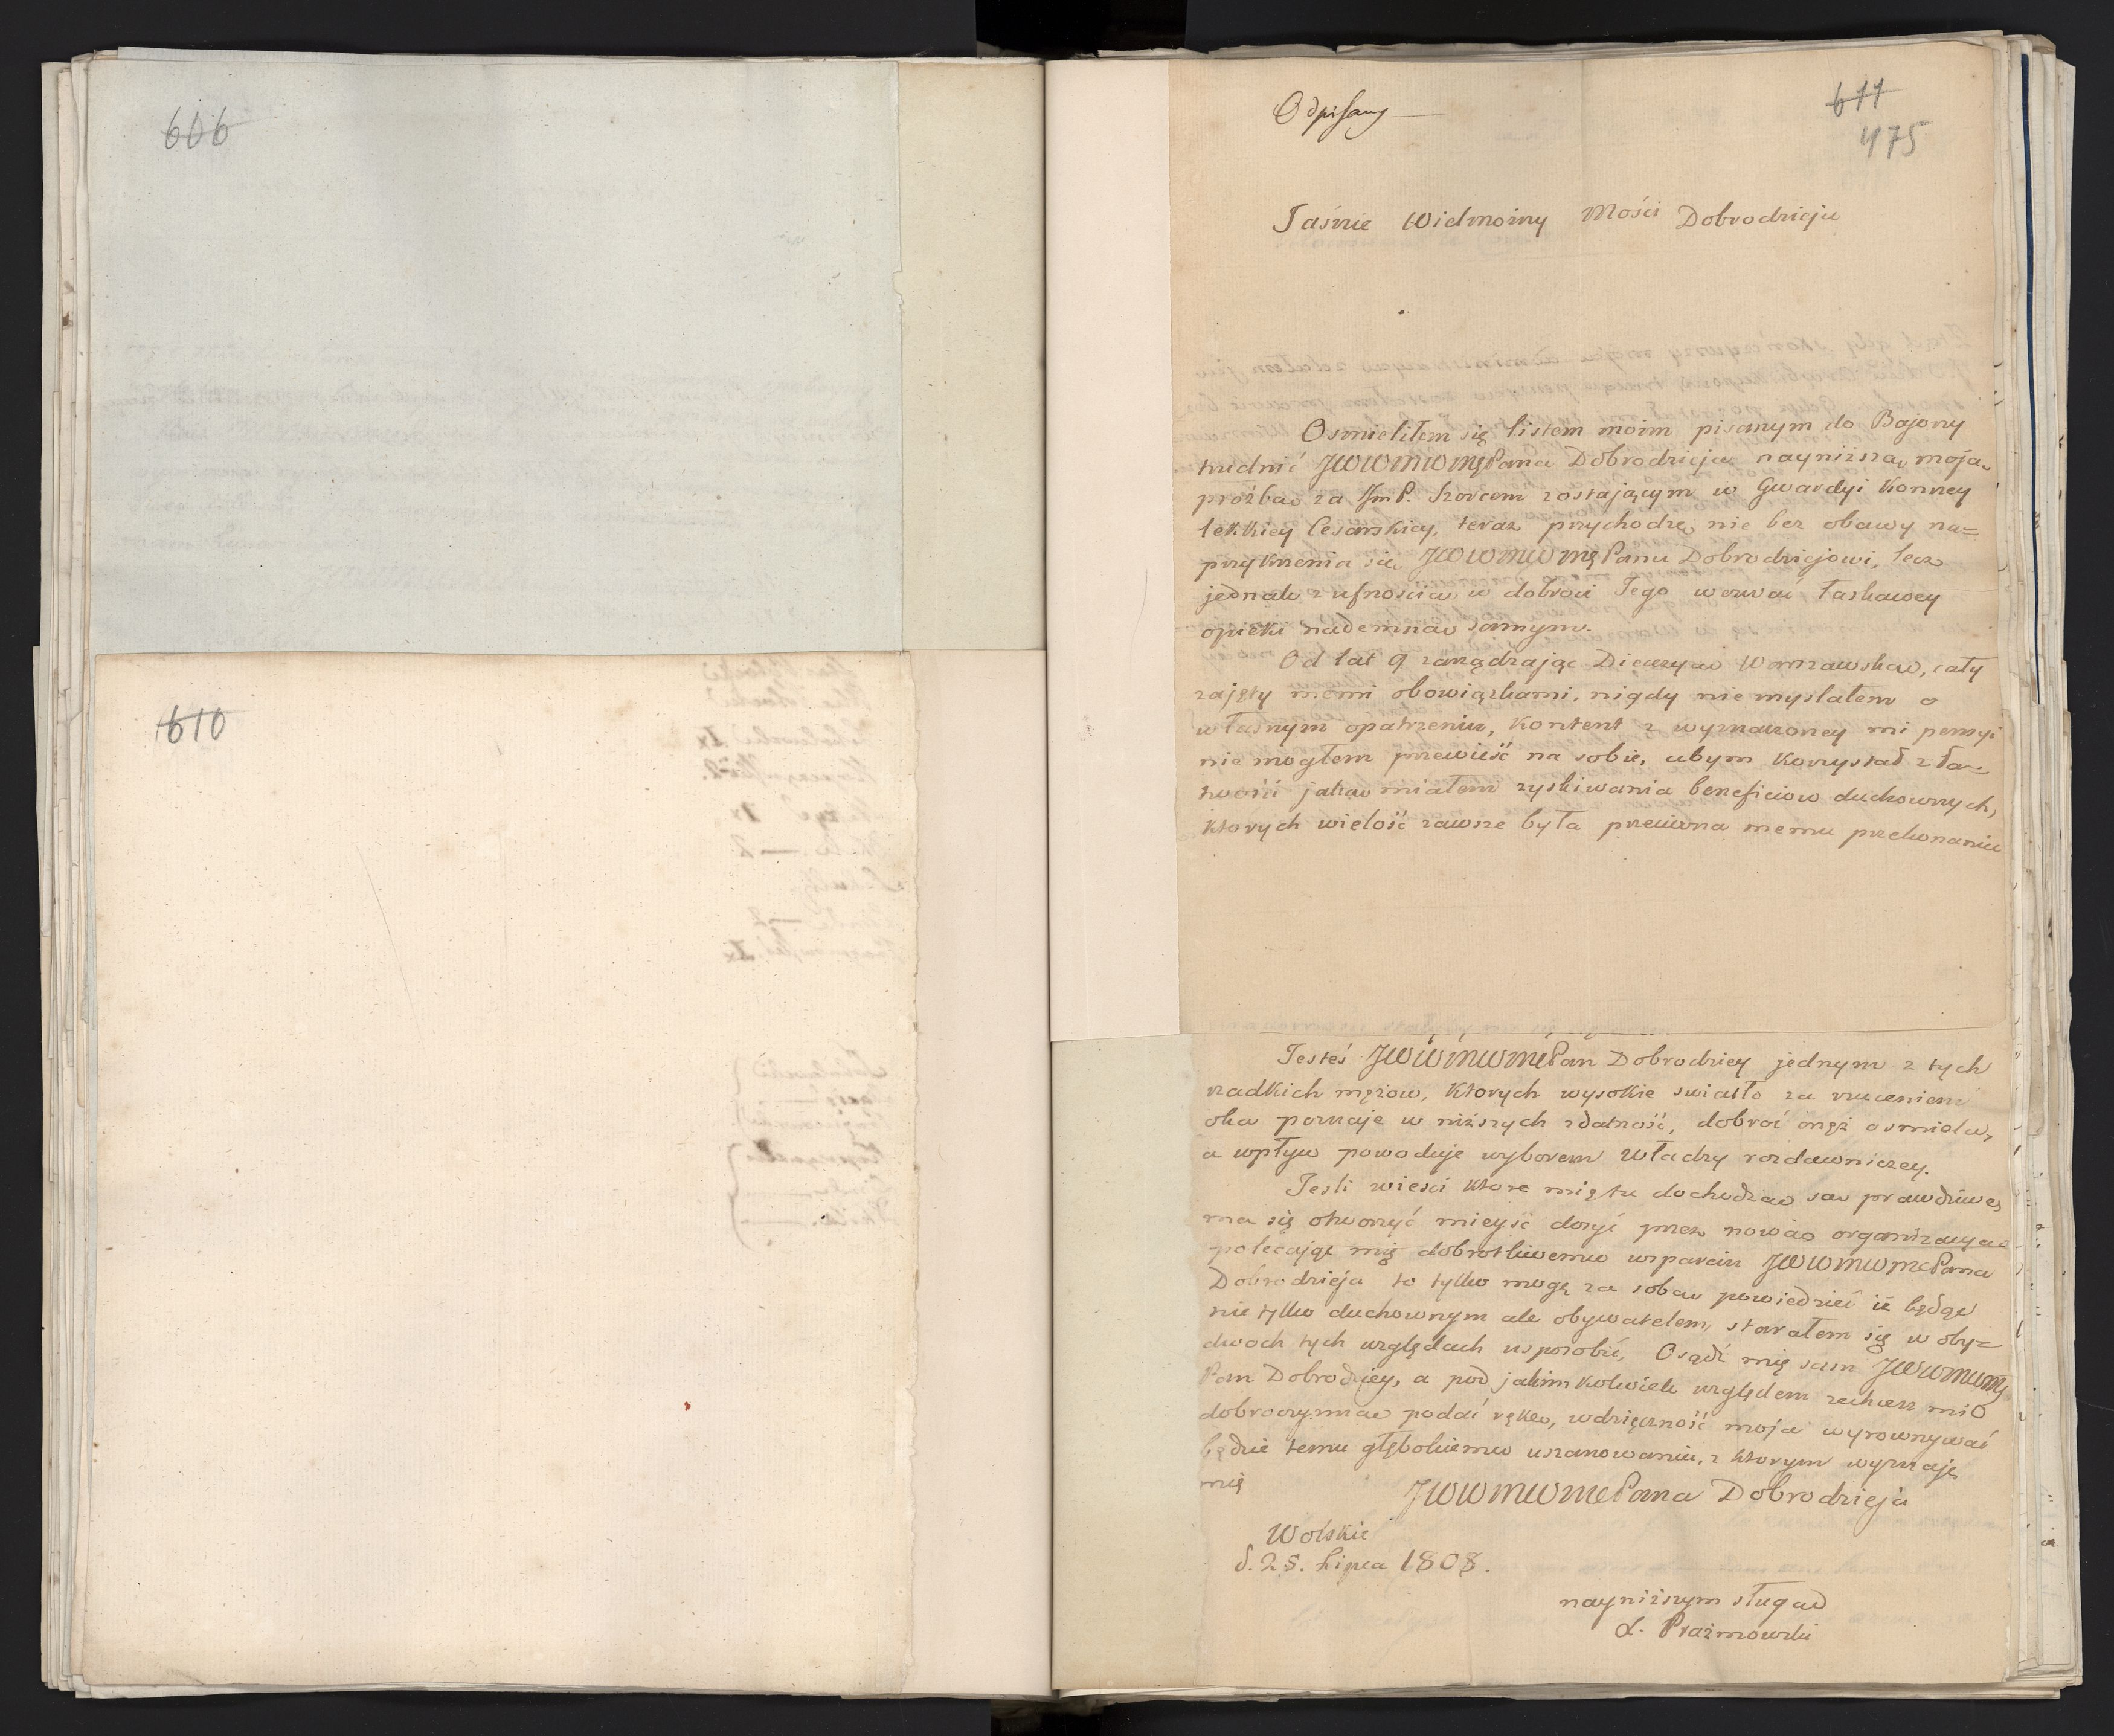 606
610
Odpisany
611
475
Jaśnie Wielmożny Mości Dobrodzieju
Osmieliłem się listem moim pisanym do Bajony
trudnić JWWMWMęPana Dobrodzieja nayniższą moją
proźbą za JmP. Szorcem zostającym w Gwardyi Konney
lekkiey Cesarskiey, teraz przychodzę nie bez obawy na=
przykrzenia się JWWMWMęPanu Dobrodziejowi, lecz
jednak z ufnością w dobroci Jego wezwać łaskawey
opieki nademną samym.
Od lat 9 zarządzając Diecezyą Warszawską, cały
zajęty memi obowiązkami, nigdy nie myslałem o
własnym opatrzeniu, kontent z wyznaczoney mi pensyi
nie mogłem przewieść na sobie, abym korzystał z ła=
twości jaką miałem zyskiwania beneficiow duchownych,
ktorych wielość zawsze była przeciwna memu przekonaniu
Jesteś JWWMWMęPan Dobrodziey jednym z tych
rzadkich mężow, ktorych wysokie swiatło za rzuceniem
oka poznaje w niższych zdatność, dobroć onęż osmiela,
a wpływ powoduje wyborem Władzy rozdawniczey.
Jesli wiesci ktore mię tu dochodzą są prawdziwe,
ma się otworzyć mieysc dosyć przez nową organizacyą
polecając mię dobrotliwemu wsparciu JWWMWMęPana
Dobrodzieja to tylko mogę za sobą powiedzieć iż będąc
nie tylko duchownym ale obywatelem, starałem się w oby=
dwoch tych względach usposobić, Osądź mię sam JWWMWMę
Pan Dobrodziey, a pod jakimkolwiek względem zechcesz mi
dobroczynną podać rękę, wdzięczność moja wyrownywać
będzie temu głębokiemu uszanowaniu, z ktorym wyznaję
mię
JWWMWMęPana Dobrodzieja
Wolskie
d. 25. Lipca 1808.
nayniższym sługą
X. Prażmowski